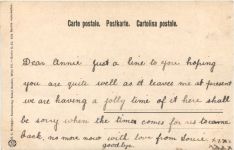 Carte postale. Postkarte. Cartolina postale.
Dear Annie. Just a line to you hoping
you are quite well as it leaves me at present
we are having a jolly time of it here shall
be sorry when the times comes for us to come
back, no more now with love from Louie.
goodbye.